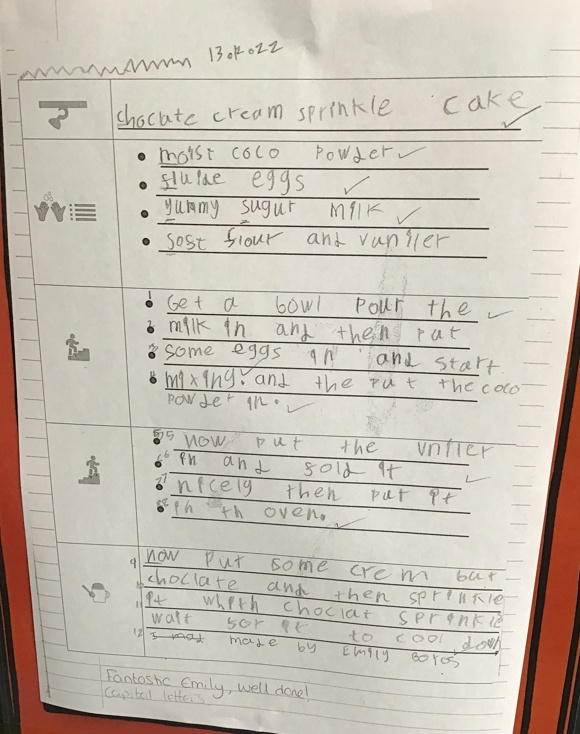 13.01.2022
chocute cream sprinkle cake
moist coco powder
fluide eggs
yummy sugur milk
sost flour and vuniler
1 Get a bowl pour the
2 milk in and then put
3 some eggs in and start
4 mixing. and the put the coco
powder in.
5 now put the vniler
6 in and fold it
7 nicely then put it
8 in th oven.
9 now put some crem but
10 choclate and then sprinkle
11 it whith choclat sprinkle
wait for it to cool down
12 made by Emily Boros
Fantastic Emily, well done!
Capital letters